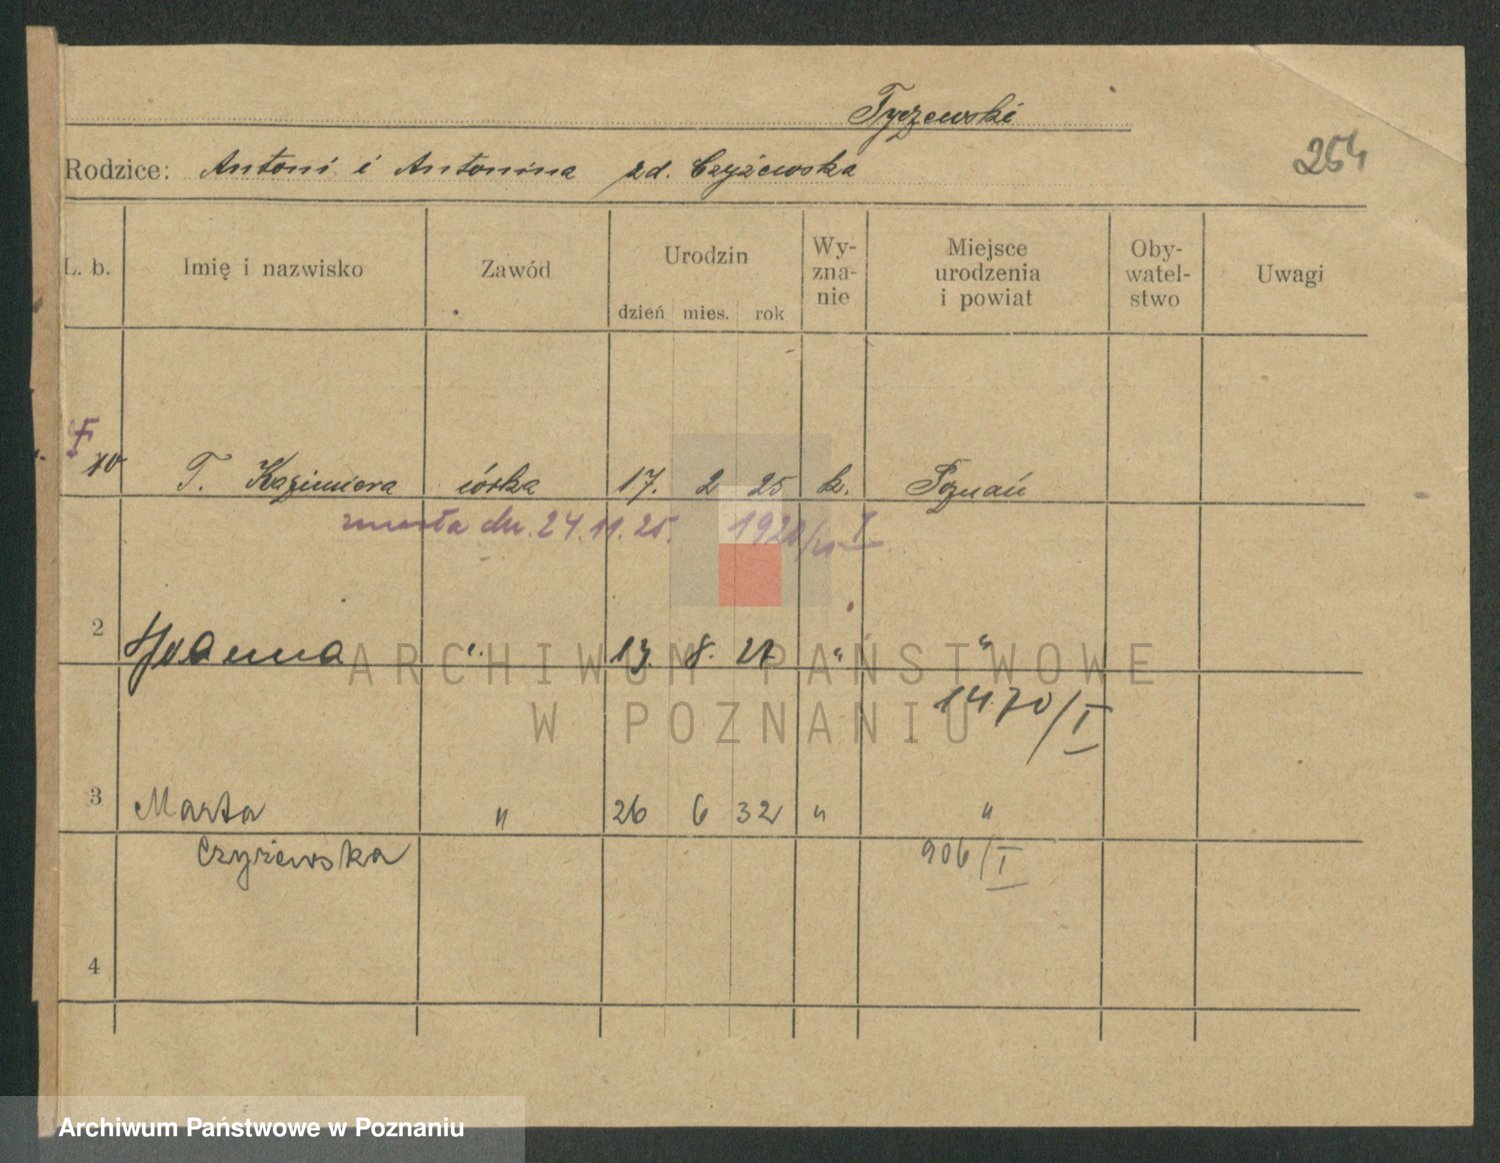 Tyczewski
254
Rodzice: Antoni i Antonina zd. Czyżewska
L. b. Imię i nazwisko Zawód Urodzin dzień mies. rok Wy-zna-nie Miejsce urodzenia i powiat Oby-watel-stwo Uwagi
T. Kazimiera córka 17. 2 25 k. Poznań
zmarła dn. 24.11.25.
2 Joanna 〃 8. 27 〃 〃
1470/I
3 Marta 〃 26 6 32 〃 〃
Czyżewska 906/I
4
ARCHIWUM PAŃSTWOWE
W POZNANIU
Archiwum Państwowe w Poznaniu